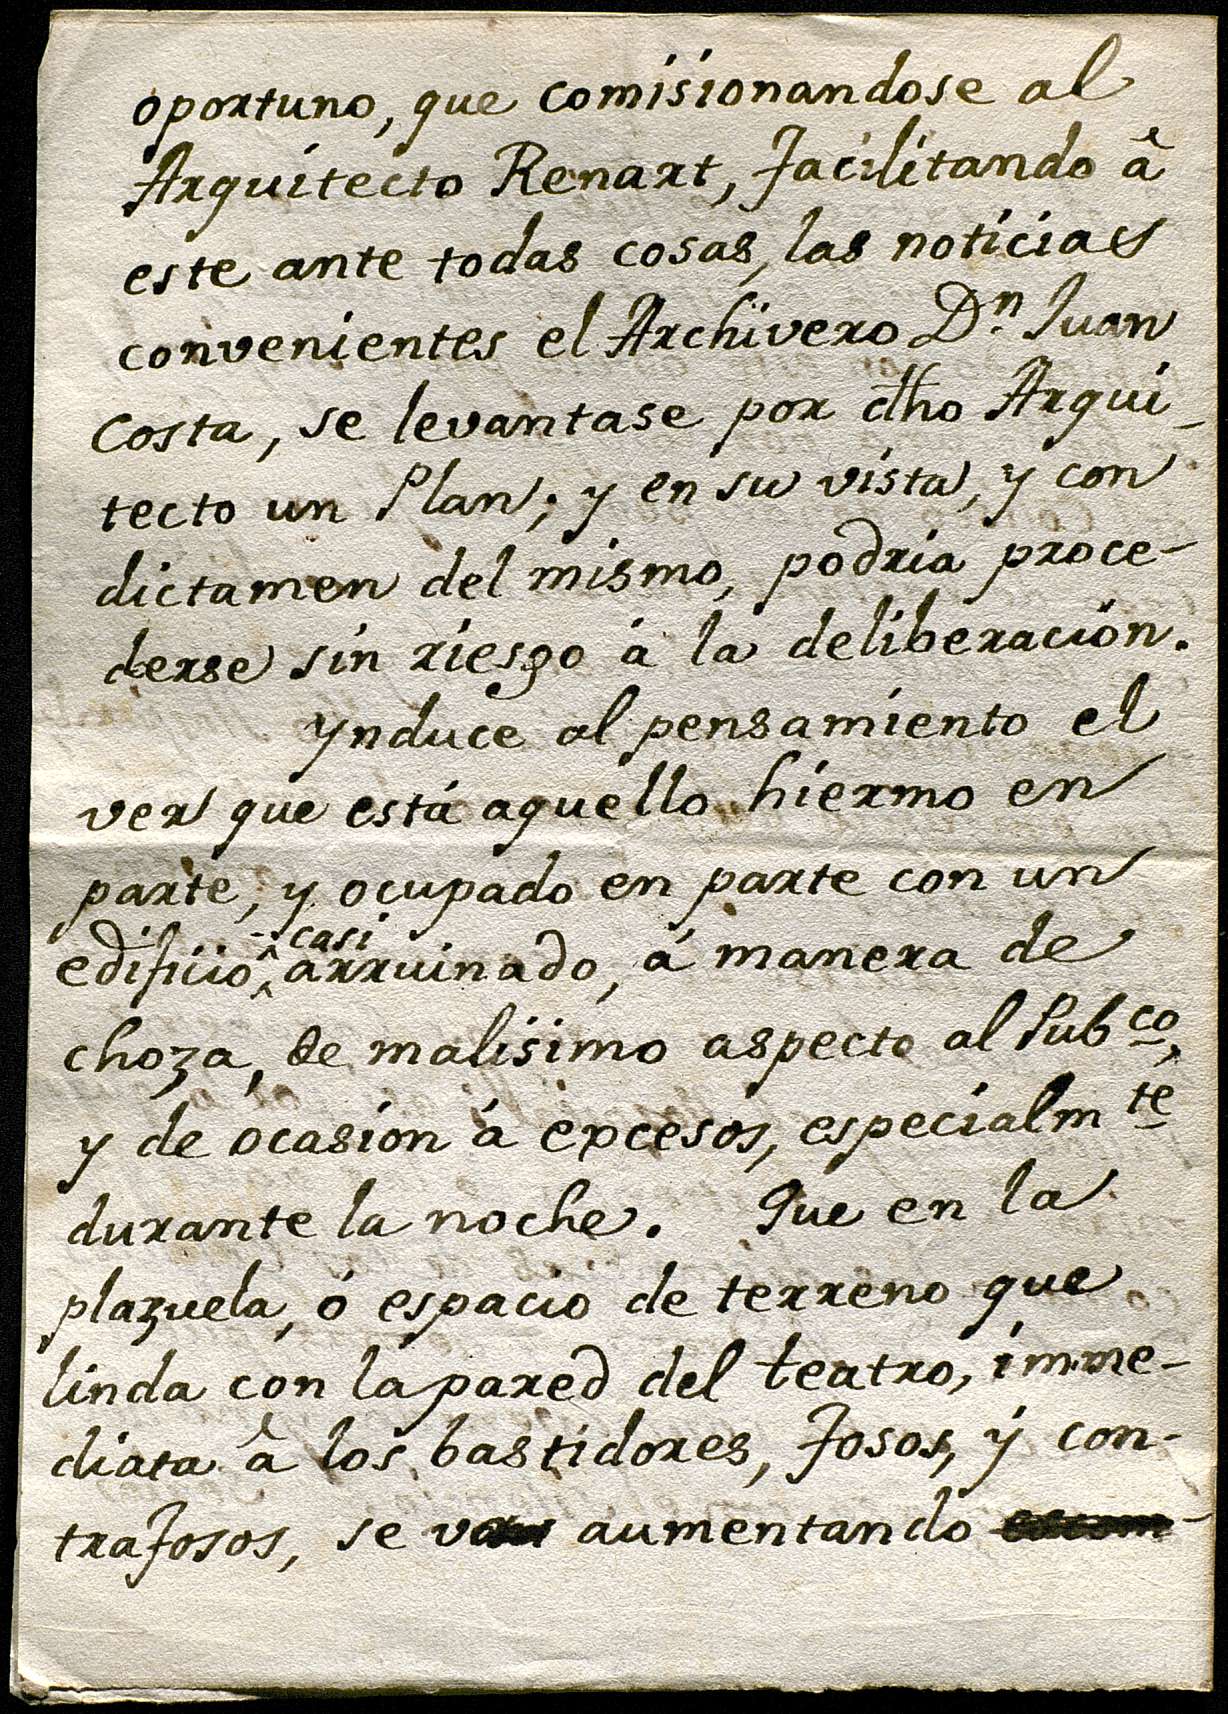 oportuno, que comisionandose al
Arquitecto Renart, facilitando â
este ante todas cosas, las noticias
convenientes el Archivero Dn. Juan
Costa, se levantase por dho Arqui-
tecto un Plan; y en su vista, y con
dictamen del mismo, podria proce-
derse sin riesgo á la deliberacion.
Ynduce al pensamiento el
ver que está aquello hiermo en
parte, y ocupado en parte con un
casi
edificio arruinado, á manera de
choza, de malisimo aspecto al Pubco,
y de ocasion á excesos, especialmte
durante la noche. Que en la
plazuela, ó espacio de terreno que
linda con la pared del teatro, imme-
diata à los bastidores, fosos, y con-
trafosos, se va aumentando